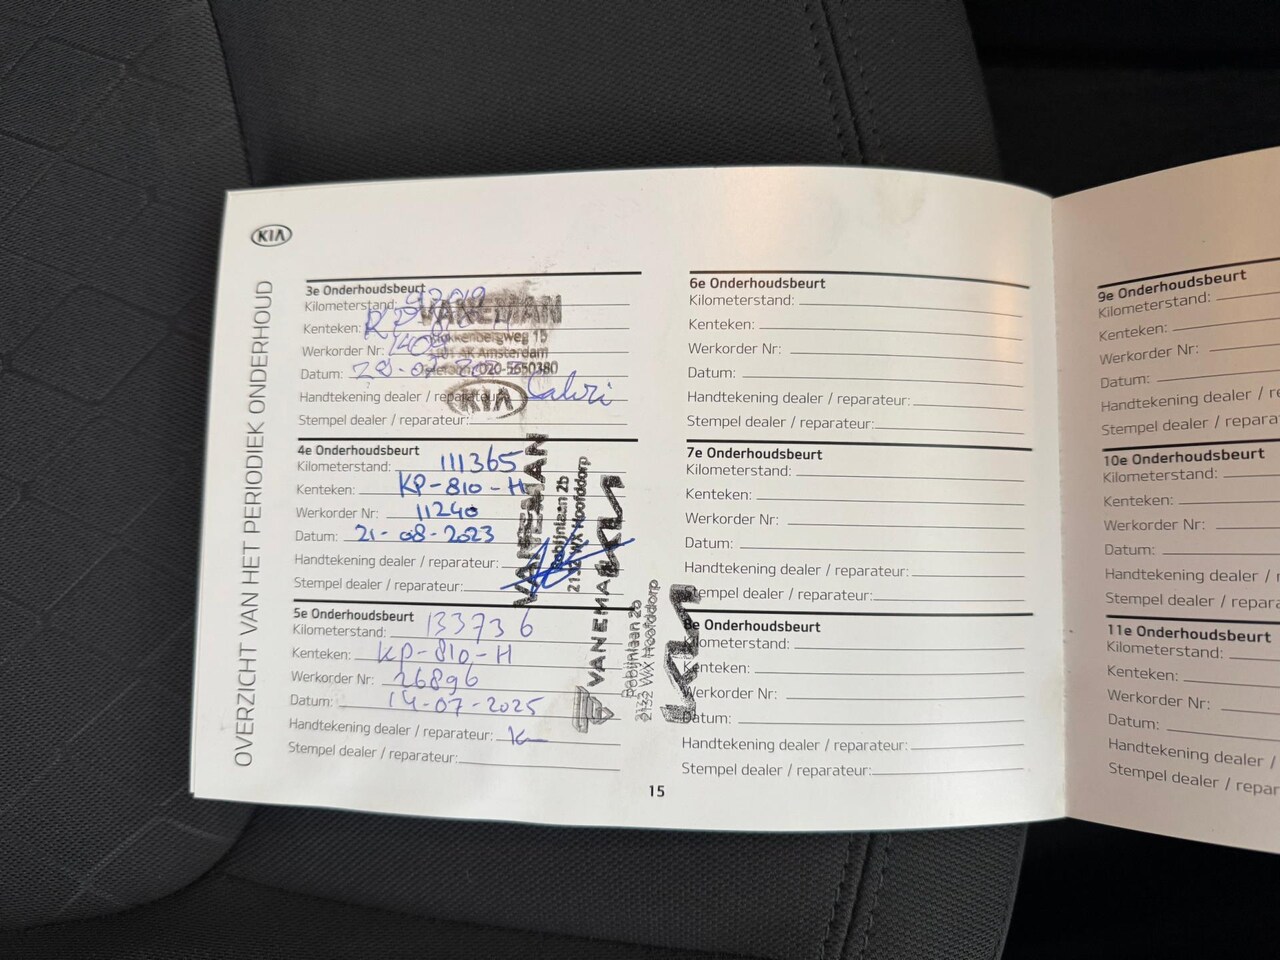 KIA
OVERZICHT VAN HET PERIODIEK ONDERHOUD
3e Onderhoudsbeurt
Kilometerstand:
Kenteken:
Werkorder Nr:
Datum:
Handtekening dealer / reparateur:
Stempel dealer / reparateur:
VANEMAN
weg 15
AK Amsterdam
020-5650380
KIA
4e Onderhoudsbeurt
Kilometerstand: 111365
Kenteken: KP-810-H
Werkorder Nr: 11240
Datum: 21-08-2023
Handtekening dealer / reparateur:
Stempel dealer / reparateur:
VANEMAN
Robijnlaan 2b
2132 WX Hoofddorp
KIA
5e Onderhoudsbeurt
Kilometerstand: 133736
Kenteken: KP-810-H
Werkorder Nr: 26896
Datum: 14-07-2025
Handtekening dealer / reparateur:
Stempel dealer / reparateur:
VANEMAN
Robijnlaan 2b
2132 WX Hoofddorp
KIA
6e Onderhoudsbeurt
Kilometerstand:
Kenteken:
Werkorder Nr:
Datum:
Handtekening dealer / reparateur:
Stempel dealer / reparateur:
7e Onderhoudsbeurt
Kilometerstand:
Kenteken:
Werkorder Nr:
Datum:
Handtekening dealer / reparateur:
Stempel dealer / reparateur:
8e Onderhoudsbeurt
Kilometerstand:
Kenteken:
Werkorder Nr:
Datum:
Handtekening dealer / reparateur:
Stempel dealer / reparateur:
15
9e Onderhoudsbeurt
Kilometerstand:
Kenteken:
Werkorder Nr:
Datum:
Handtekening dealer / re
Stempel dealer / repara
10e Onderhoudsbeurt
Kilometerstand:
Kenteken:
Werkorder Nr:
Datum:
Handtekening dealer / r
Stempel dealer / repara
11e Onderhoudsbeurt
Kilometerstand:
Kenteken:
Werkorder Nr:
Datum:
Handtekening dealer /
Stempel dealer / repar